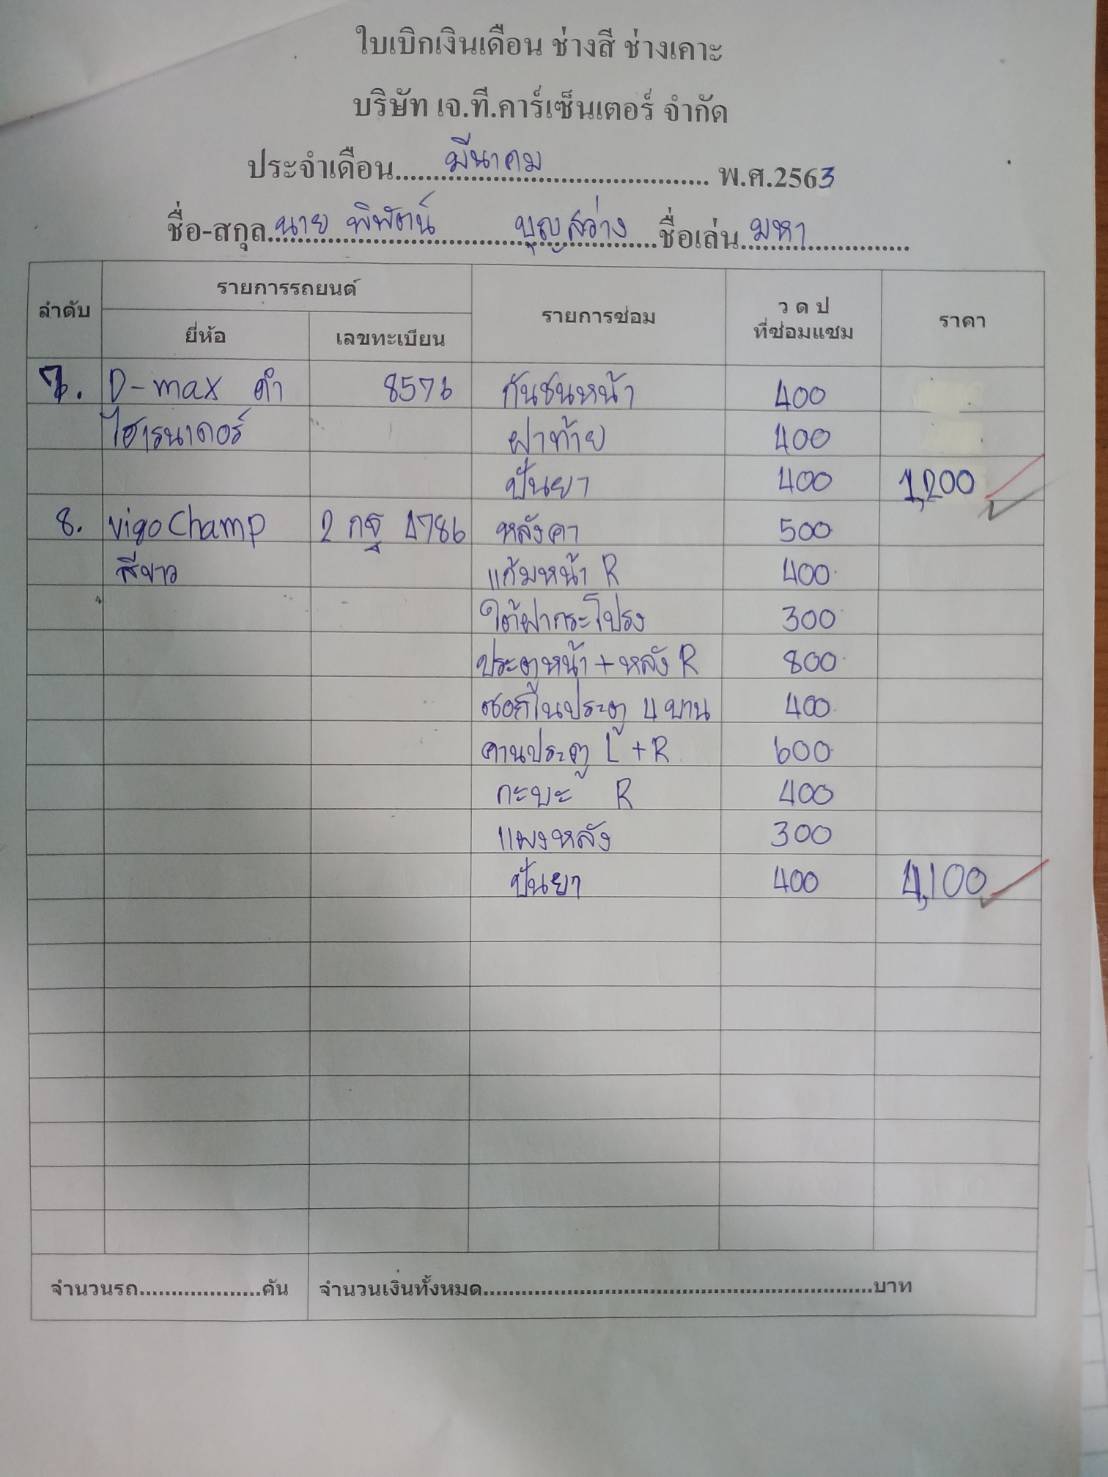 ใบเบิกเงินเดือน ช่างสี ช่างเคาะ
บริษัท เจ.ที.คาร์เซ็นเตอร์ จำกัด
ประจำเดือน....มีนาคม.... พ.ศ.2563
ชื่อ-สกุล..นาย พิพัตน์ บุญสว่าง..ชื่อเล่น..มหา..
ลำดับ รายการรถยนต์ รายการซ่อม ว ด ป ที่ซ่อมแซม ราคา
ยี่ห้อ เลขทะเบียน
7. D-max ดำ 8576 กันชนหน้า 400
ไฮารนาดอร์ ฝาท้าย 400
ปั่นยา 400 1,200
8. Vigo Champ 2 กฐ 1786 หลังคา 500
สีขาว แก้มหน้า R 400
ใต้ฝากระโปรง 300
ประตูหน้า + หลัง R 800
ซอกในประตู 4 บาน 400
คานประตู L + R 600
กะบะ R 400
แผงหลัง 300
ปั่นยา 400 4,100
จำนวนรถ....................คัน จำนวนเงินทั้งหมด....................บาท